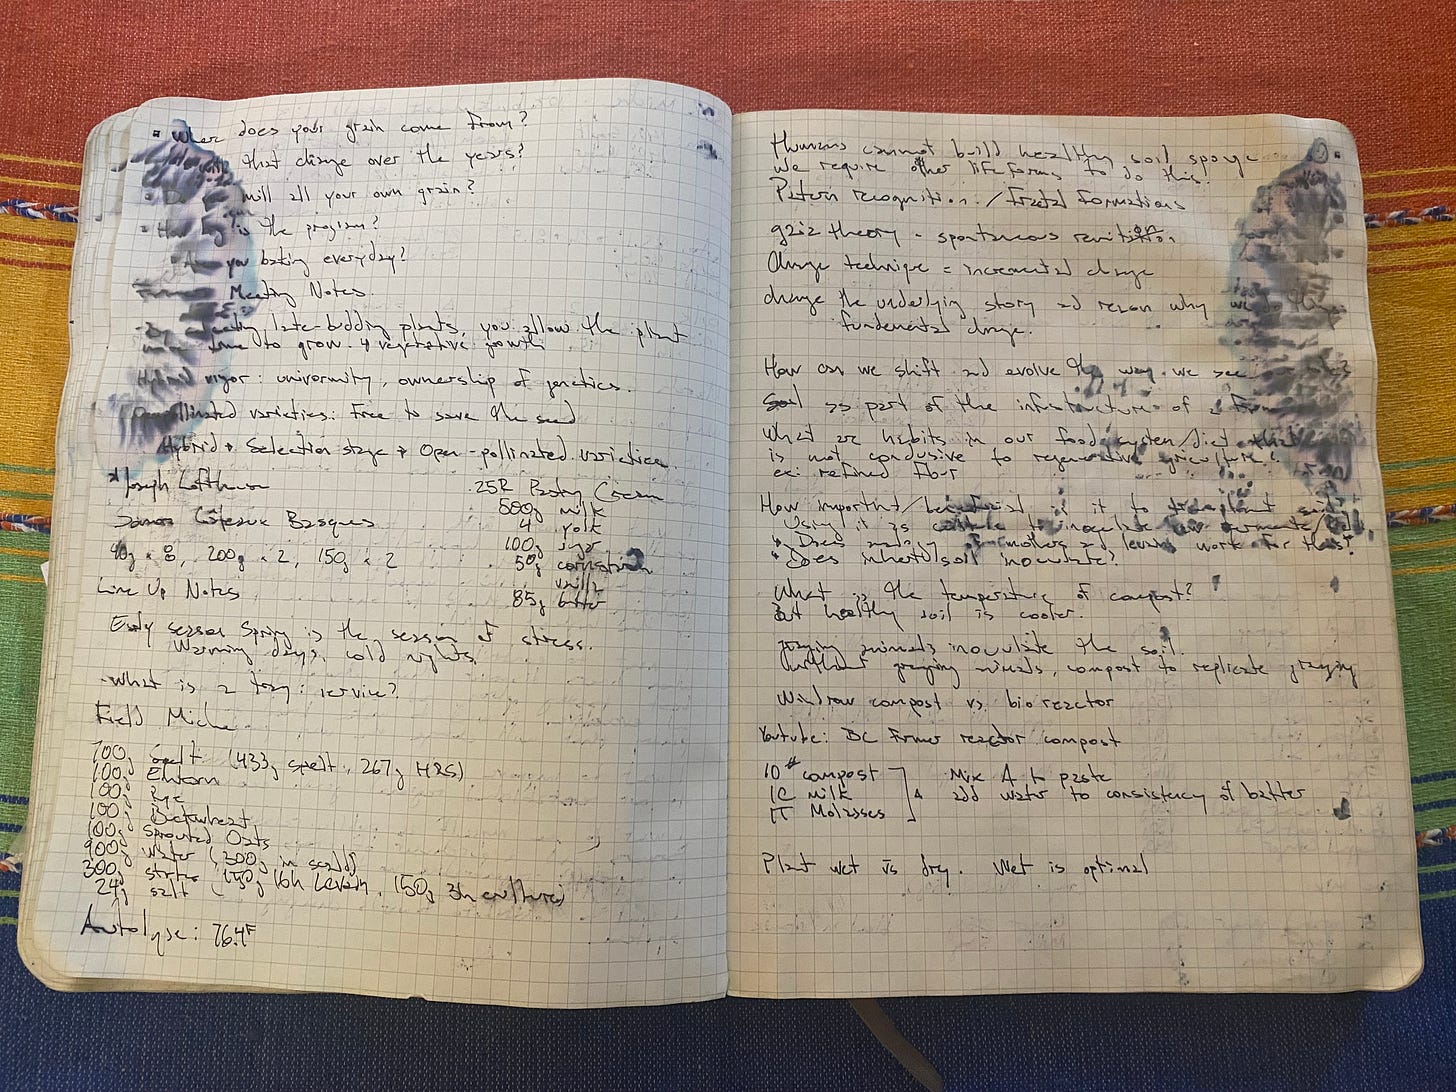 does your grain come from?
that change over the years?
mill all your own grain?
is the program?
you baking everyday?
Meeting Notes
late-budding plants, you allow the plant
to grow. & vegetative growth
Hybrid vigor: uniformity, ownership of genetics.
varieties: Free to save the seed
Hybrid → Selection stage → Open-pollinated varieties
* Joseph Lofthouse
.25R Pastry Cream
500g milk
4 yolk
100g sugar
50g cornstarch
vanilla
85g butter
Gateaux Basques
90g × 8, 200g × 2, 150g × 2
Line Up Notes
Early season Spring is the season of stress.
Warming days, cold nights.
What is a service?
Field Miche
700g Spelt (433g spelt, 267g HRS)
100g Einkorn
100g Rye
100g Buckwheat
100g Sprouted Oats
900g water (300g in scald)
300g starter (150g 16h Levain, 150g 3h culture)
24g salt
Autolyse: 76.4F
Humans cannot build healthy soil sponge
We require other lifeforms to do this.
Pattern recognition / fractal formations
gaia theory -
Change technique = incremental change
change the underlying story and reason why we
fundamental change.
How can we shift and evolve the way we see
as part of the infrastructure of a
What are habits in our food system/diet that
is not condusive to regenerative agriculture?
ex: refined flour
How important/beneficial is it to transplant
Using it as to inoculate
Does and levain work for this?
Does soil inoculate?
What is the temperature of compost?
But healthy soil is cooler.
grazing animals inoculate the soil.
Without grazing animals, compost to replicate grazing
Windrow compost vs. bioreactor
Youtube: BC Farmer reactor compost
10# compost
1C milk
1T Molasses
Mix to paste
add water to consistency of batter
Plant wet vs dry. Wet is optimal